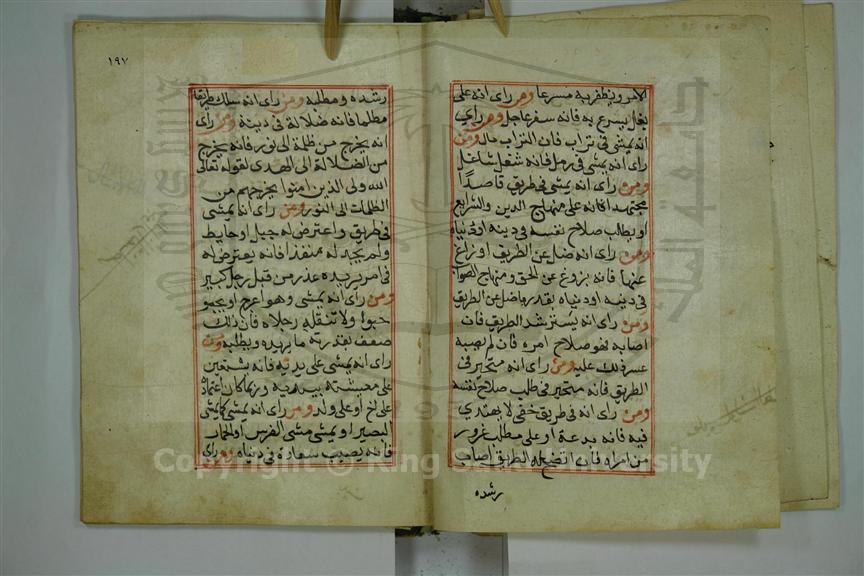 الامر ويظفر به مسرعا ومن راى انه على
بغل يسرع به فانه سفر عاجل ومن راى
انه يمشى فى تراب فان التراب مال ومن
راى انه يمشى فى رمل فانه شغل شاغل
ومن راى انه يمشى فى طريق قاصدًا
مجتهدا فانه على منهاج الدين والشرايع
او يطلب صلاح نفسه فى دينه او دنياه
ومن راى انه ضل عن الطريق او زاغ
عنها فانه يزوغ عن الحق ومنهاج الصواب
فى دينه او دنياه بقدر ما ضل عن الطريق
ومن راى انه يسترشد الطريق فان
اصابه فهو صلاح امره فان لم يصبه
عسر ذلك عليه ومن راى انه متحير فى
الطريق فانه متحير فى طلب صلاح نفسه
ومن راى انه فى طريق خفى لا يهتدى
فيه فانه بدعة او على مطلب غرور
من امره فان اتضح له الطريق اصاب
رشده
١٩٧
رشده ومطلبه ومن راى انه سلك طريقا
مظلما فانه ضلالة فى دينه ومن راى
انه يخرج من ظلمة الى نور فانه يخرج
من الضلالة الى الهدى لقوله تعالى
الله ولى الذين امنوا يخرجهم من
الظلمات الى النور ومن راى انه يمشى
فى طريق واعترض له جبل او حايط
ولم يجد له منفذا فانه يعترض له
فى امر يريده عذر من قبل رجل كبير
ومن راى انه يمشى وهو اعرج او يحبو
حبوا ولا تنقله رجلاه فان ذلك
ضعف بقدرته ما يريده ويطلبه ومن
راى انه يمشى على يديه فانه يستعين
على معيشته بيديه وربما كان اعتماده
على اخ او على ولد ومن راى انه يمشى كما يمشى
البصير او يمشى مشى الفرس او الحمار
فانه يصيب سعادة فى دنياه ومن راى
Copyright © King Saud University